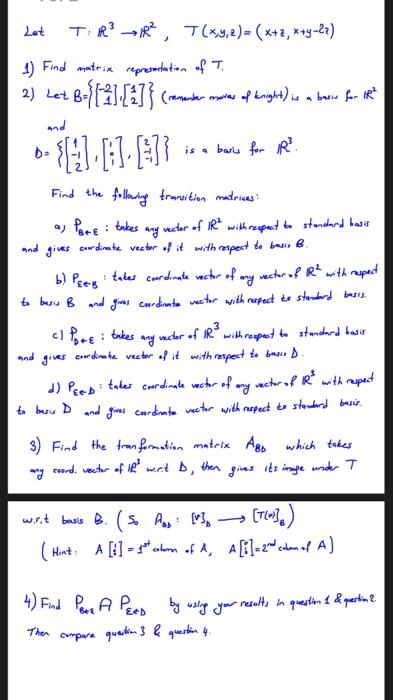 Let T: R³ → R², T(x,y,z) = (x+z, x+y-2z)
1) Find matrix represedation of T.
2) Let B={[-2 1],[1 2]} (remember moves of knight) is a basis for R²
and
D= {[1 -1 2], [1 1 1], [2 -1 -1]} is a basis for R³.
Find the following transition matrices:
a) P_B←E : takes any vector of R² with respect to standard basis
and gives cordinate vector of it with respect to basis B.
b) P_E←B : takes coordinate vector of any vector of R² with respect
to basis B and gives cordinate vector with respect to standard basis.
c) P_D←E : takes any vector of R³ with respect to standard basis
and gives cordinate vector of it with respect to basis D.
d) P_E←D : takes coordinate vector of any vector of R³ with respect
to basis D and gives cordinate vector with respect to standard basis.
3) Find the tranformation matrix A_BD which takes
any coord. vector of R³ w.r.t D, then gives its image under T
w.r.t basis B. (So A_BD : [v]_D → [T(v)]_B)
(Hint: A = 1st column of A, A = 2nd column of A)
4) Find P_B←E A P_E←D by using your results in question 1 & question 2
Then compare question 3 & question 4.